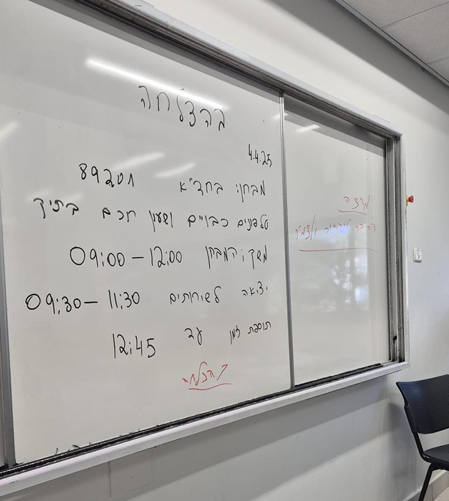 בהצלחה
4.4.25
מבחן: בחד"א 89201
טלפונים כבויים ושעון חכם בתיק
משך המבחן 09:00-12:00
יציאה לשירותים 09:30-11:30
תוספת זמן עד 12:45
בהצלחה